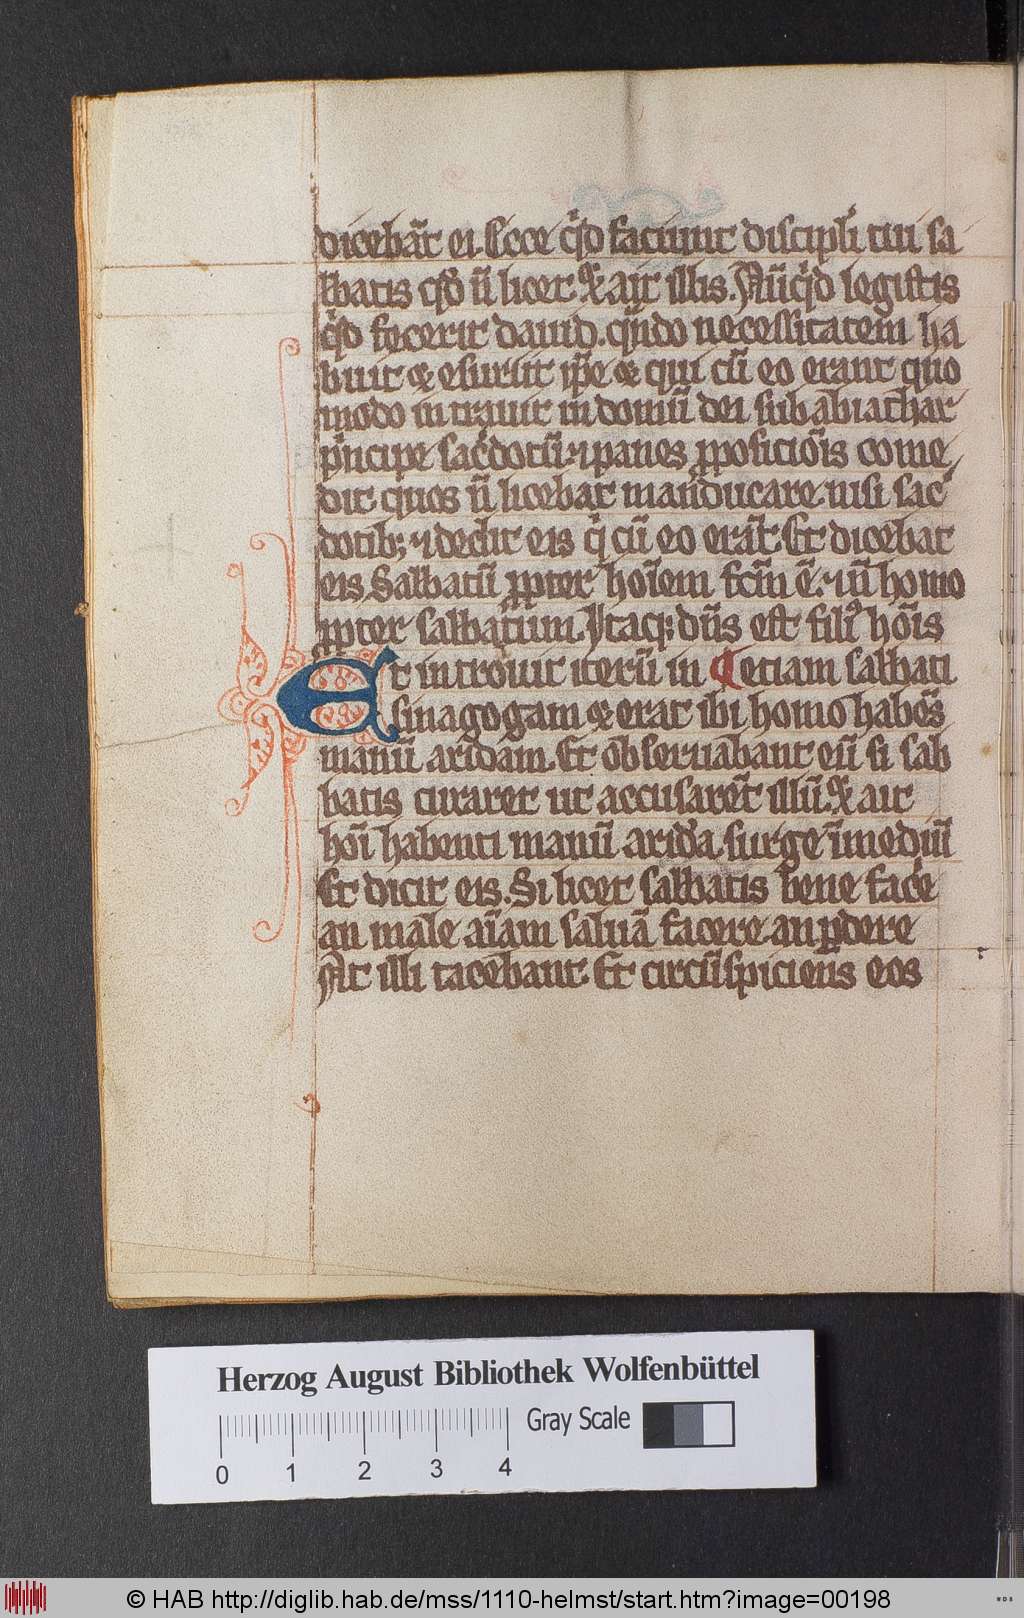 dicebāt ei. Ecce qͥd faciunt discipli tui sa
bbatis qd̕ n̄ licet. ⁊ ait illis. Nūqͥd legistis
qͥd fecerit dauid. qn̄do necessitatem ha
buit ⁊ esuriit ip̄e ⁊ qui cū eo erant quo
modo intrauit in domū dei sub abiathar
pͥncipe sac̕dotū ⁊ panes ꝓpositiōis come
dit quos n̄ licebat manducare nisi sac̕
dotib; ⁊ dedit eis qͥ cū eo erāt. Et dicebat
eis. Sabbatū ꝓpter hoīem fc̄m ē. ⁊ n̄ homo
ꝓpter sabbatum. Itaq; dn̄s est filiꝰ hoīs
Et introiuit iterū in etiam sabbati
sinagogam ⁊ erat ibi homo habēs
manū aridam. Et obseruabant eū si sab
batis curaret ut accusarēt illū. ⁊ ait
hoī habenti manū aridā surge īmediū
Et dicit eis. Si licet sabbatis bene fac̕e
an male aīam saluā facere an ꝑdere
At illi tacebant. Et circūspiciens eos
Herzog August Bibliothek Wolfenbüttel
Gray Scale
0 1 2 3 4
© HAB http://diglib.hab.de/mss/1110-helmst/start.htm?image=00198